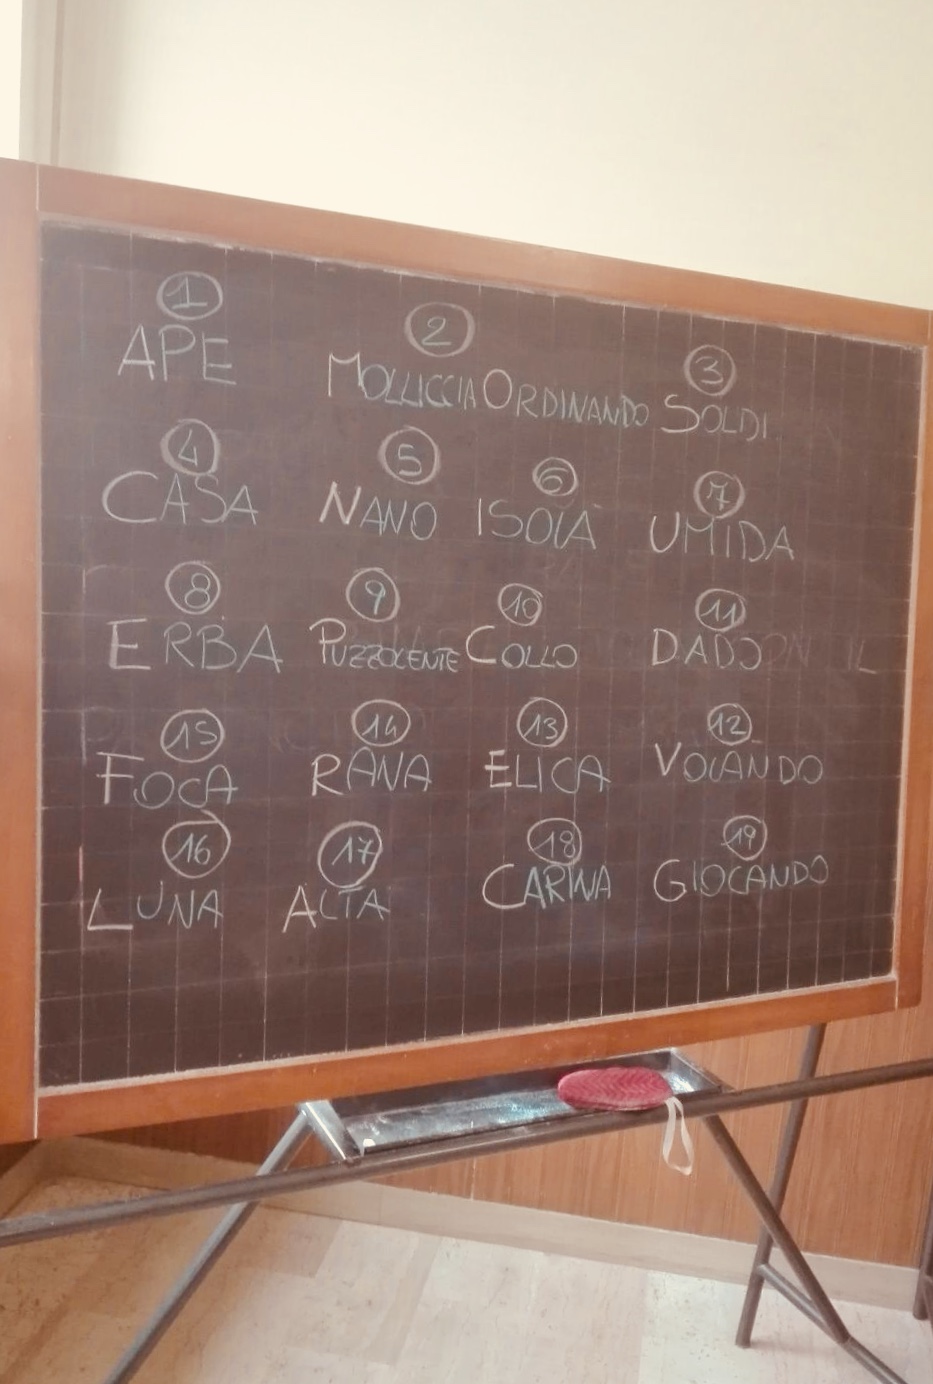 1 2 3
APE MOLLICCIA ORDINANDO SOLDI
4 5 6 7
CASA NANO ISOLA UMIDA
8 9 10 11
ERBA PUZZOLENTE COLLO DADO
15 14 13 12
FOCA RANA ELICA VOLANDO
16 17 18 19
LUNA ALTA CARINA GIOCANDO